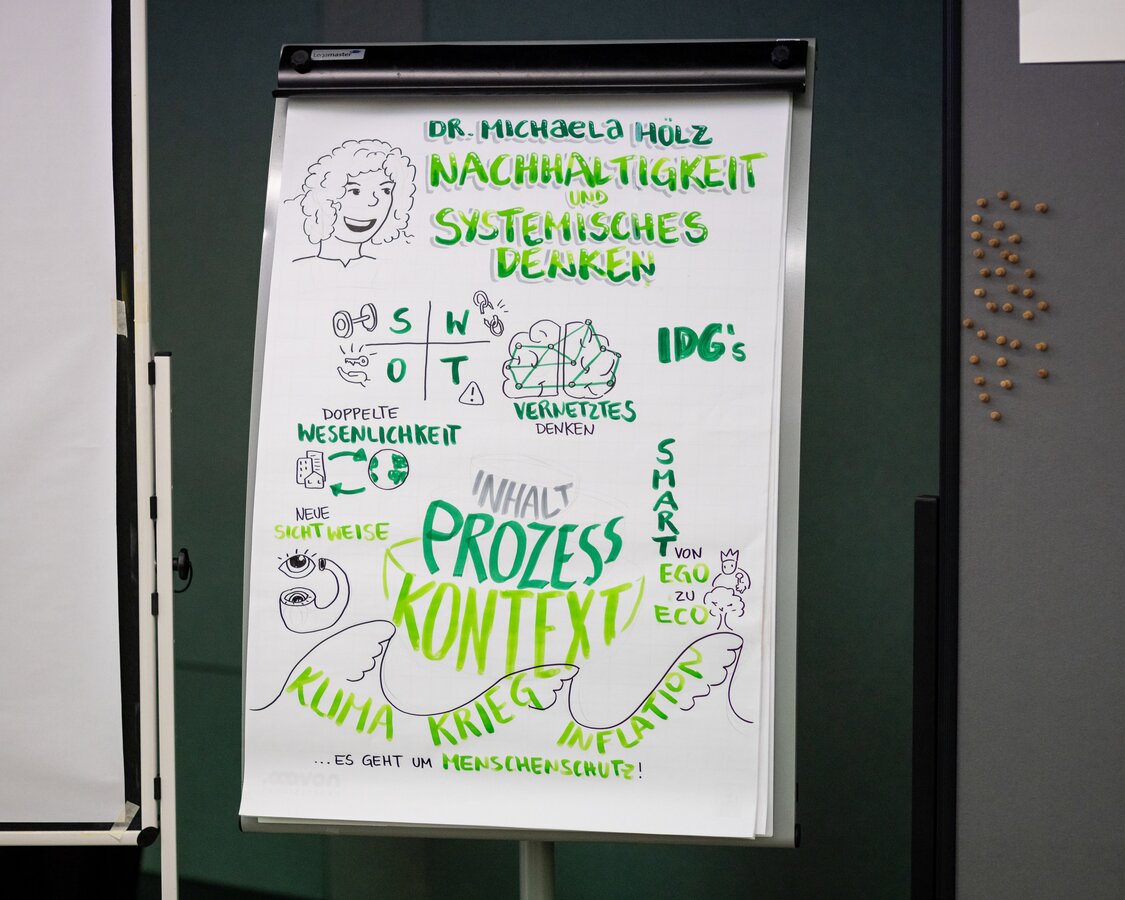 Legamaster
DR. MICHAELA HÖLZ
NACHHALTIGKEIT
UND
SYSTEMISCHES
DENKEN
S W
O T
!
IDG's
VERNETZTES
DENKEN
DOPPELTE
WESENLICHKEIT
NEUE
SICHTWEISE
INHALT
PROZESS
KONTEXT
SMART
VON
EGO
ZU
ECO
KLIMA
KRIEG
INFLATION
...ES GEHT UM MENSCHENSCHUTZ!